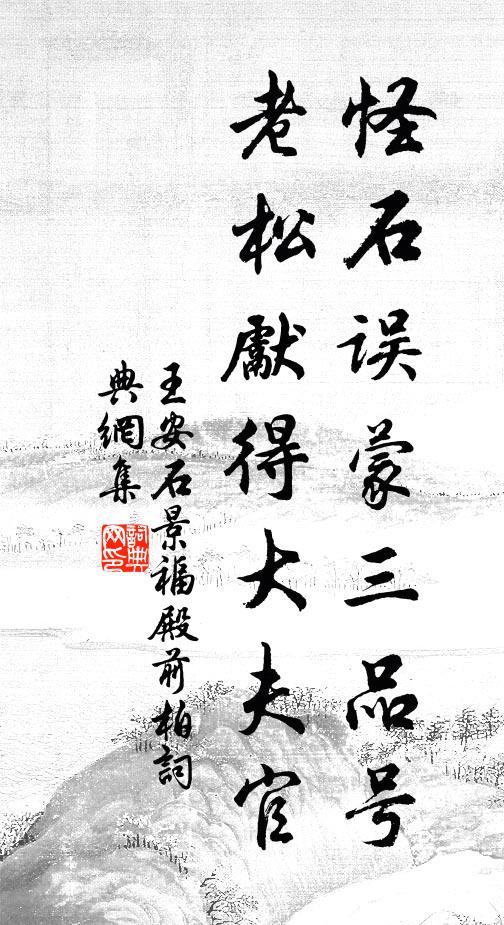 怪石误蒙三品号
老松獻得大夫官
王安石景福殿前柏詞
典網集
詞典
网印